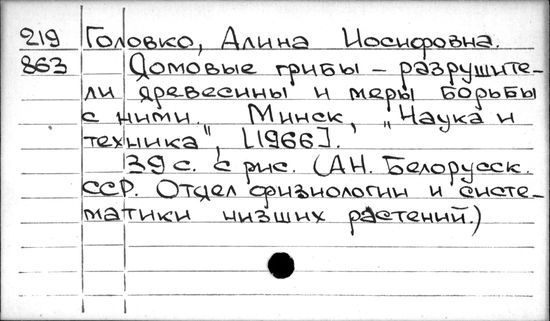 219 Головко, Алина Иосифовна.
863 Домовые грибы – разрушите-
ли древесины и меры борьбы
с ними. Минск, "Наука и
техника", [1966].
39 с. с рис. (АН. Белорусск.
ССР. Отдел физиологии и систе-
матики низших растений.)